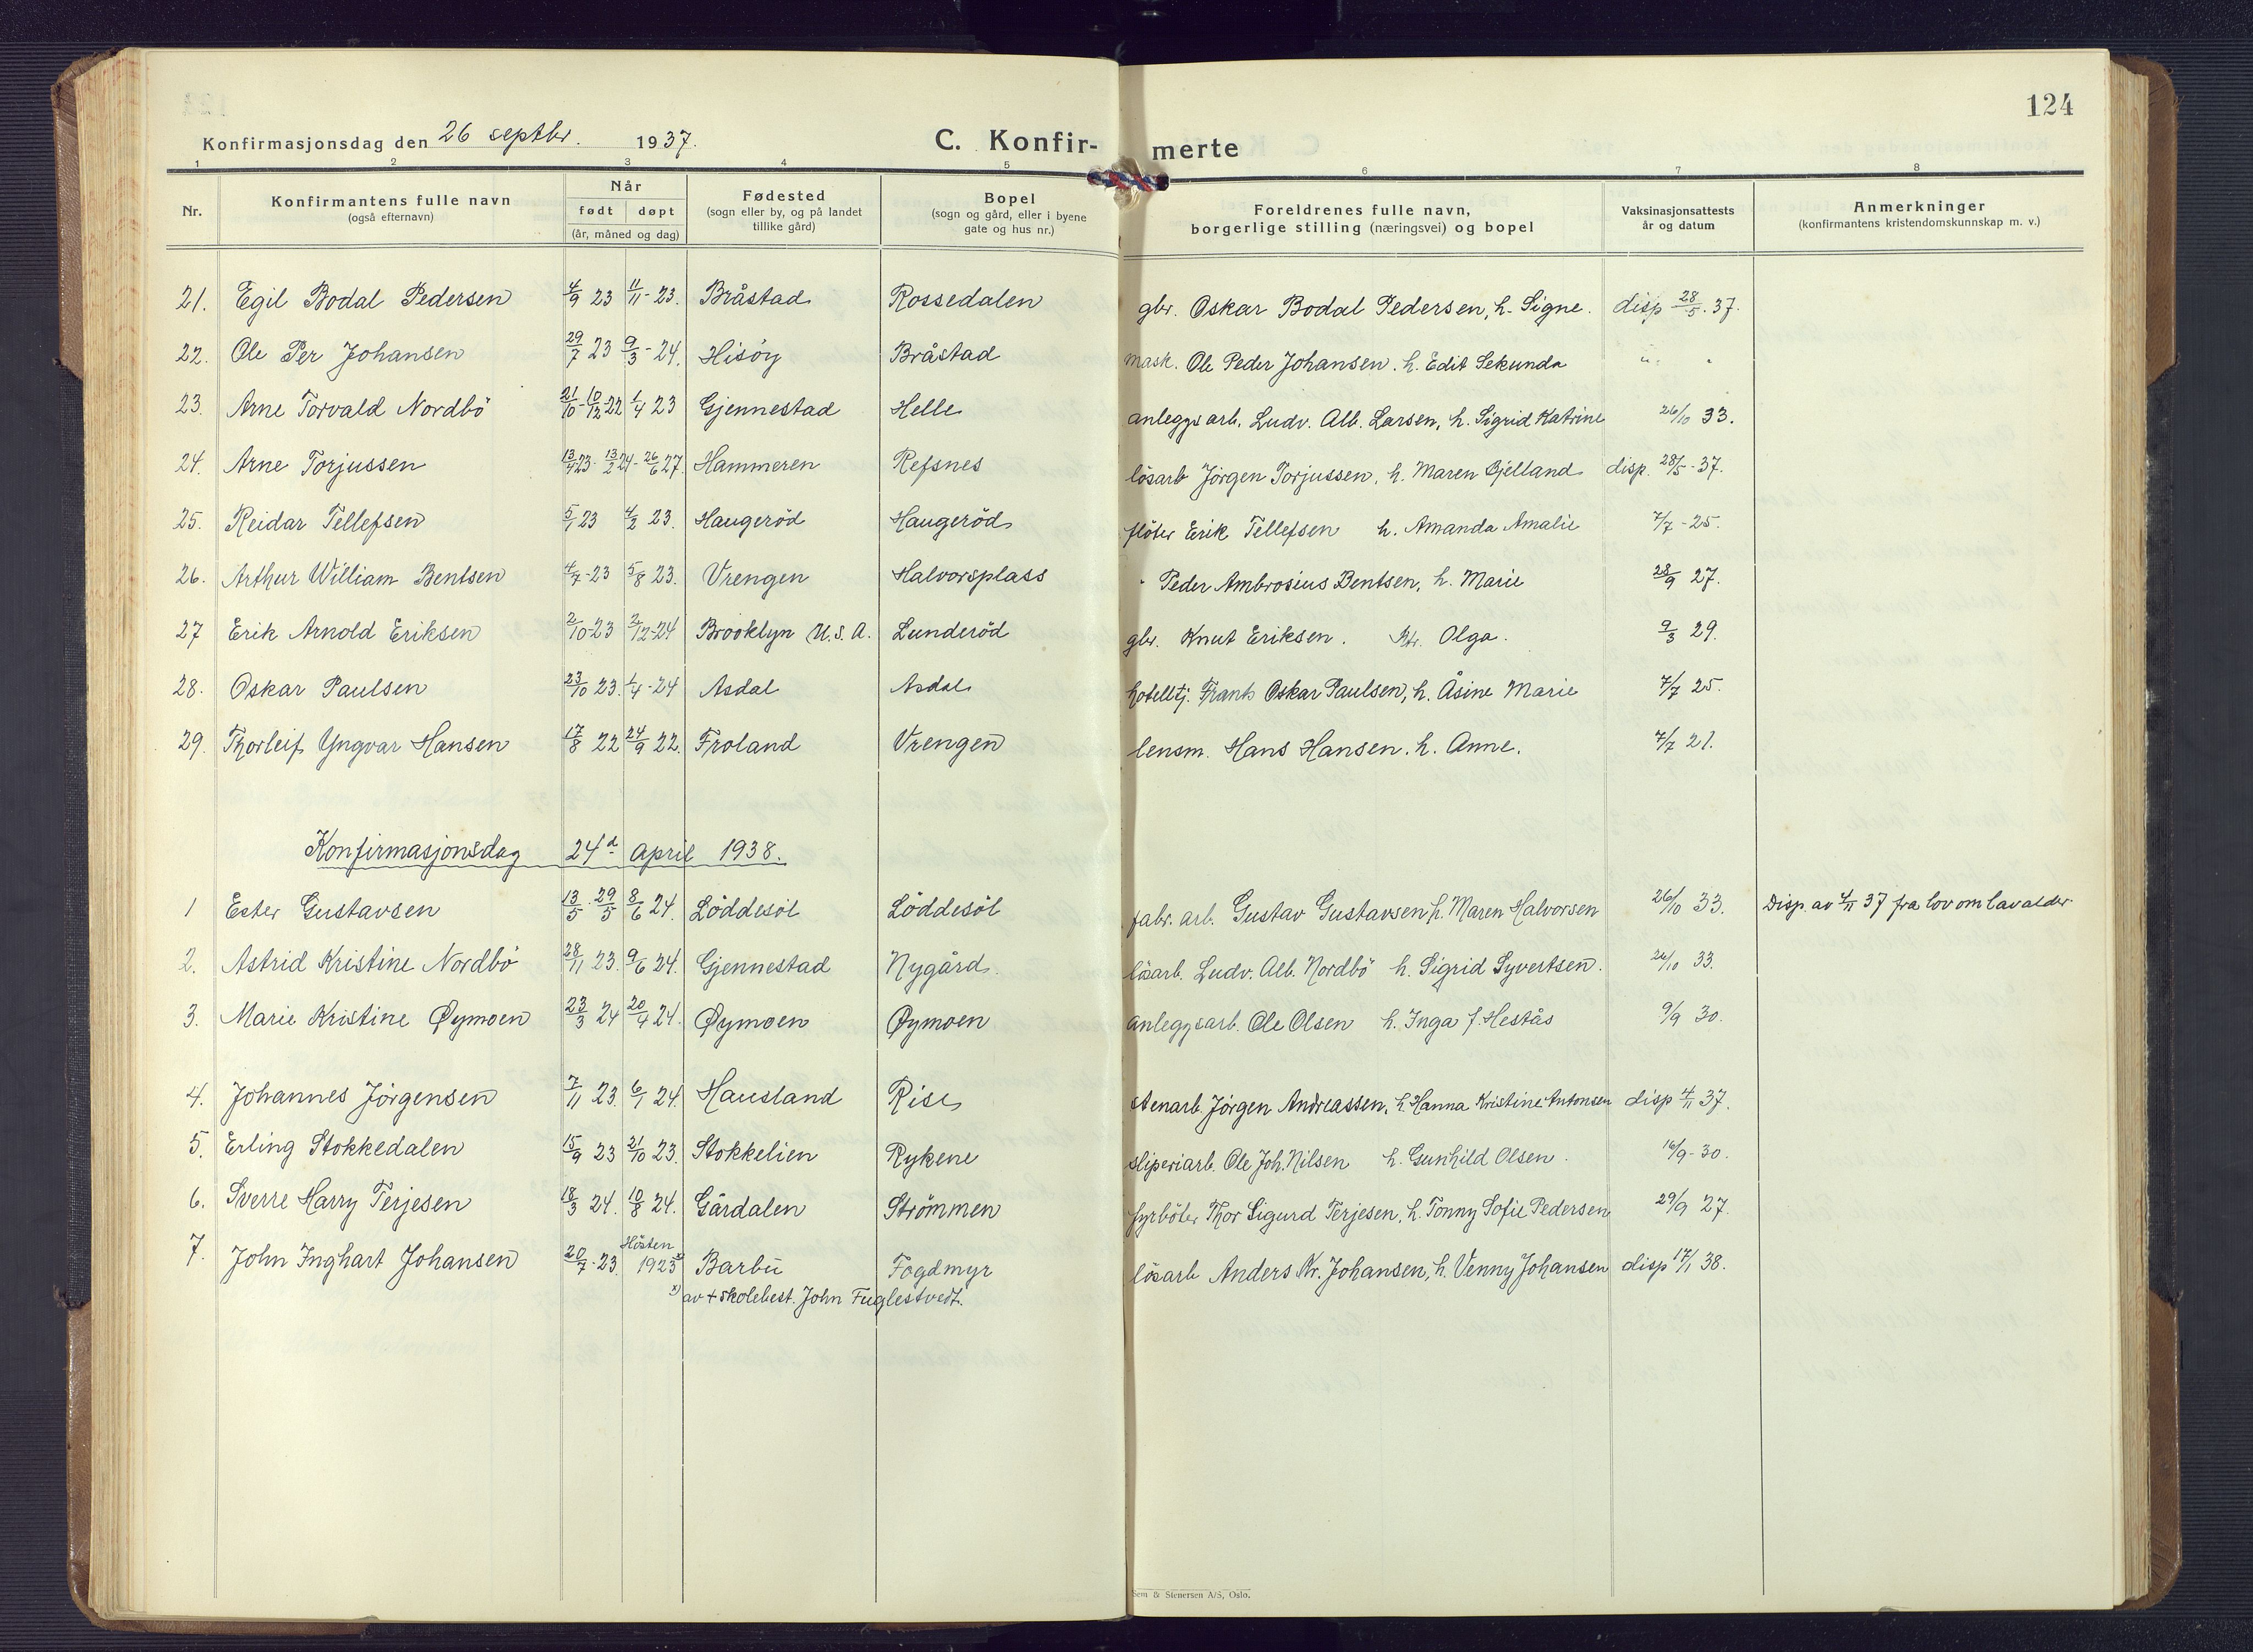 124
Konfirmasjonsdag den 26 septbr. 1937.
C. Konfirmerte
1 2 3 4 5 6 7 8
Nr. Konfirmantens fulle navn (også efternavn) Når født døpt (år, måned og dag) Fødested (sogn eller by, og på landet tillike gård) Bopel (sogn og gård, eller i byene gate og hus nr.) Foreldrenes fulle navn, borgerlige stilling (næringsvei) og bopel Vaksinasjonsattests år og datum Anmerkninger (konfirmantens kristendomskunnskap m. v.)
21. Egil Bodal Pedersen 4/9 23 11/11-23. Bråstad Rossedalen gbr. Oskar Bodal Pedersen, h. Signe. disp 28/5. 37.
22. Ole Per Johansen 29/7 23 9/3-24. Hisöy Bråstad mask. Ole Peder Johansen. h. Edit Sekunda " "
23. Arne Torvald Nordbö 21/10-10/12-22 1/4 23 Gjennestad Helle anleggsarb. Ludv. Alb. Larsen, h. Sigrid Katrine 26/10 33.
24. Arne Torjussen 13/4 23- 13/2 24- 26/6 27. Hammeren Refsnes lösarb Jörgen Torjussen, h. Maren Gjelland disp. 28/5-37.
25. Reidar Tellefsen 5/1 23 4/2 23. Haugeröd Haugeröd flöter Erik Tellefsen h. Amanda Amalie 7/7-25.
26. Arthur William Bentsen 4/7-23 5/8 23. Vrengen Halvorsplass " Peder Ambrosius Bentsen, h. Marie 28/9 27.
27 Erik Arnold Eriksen 2/10-23 2/12-24 Brooklyn U.S.A. Lunderöd gbr. Knut Eriksen. Olga. 9/3 29.
28. Oskar Paulsen 23/10 23. 1/4-24 Asdal Asdal hotelltj. Frank Oskar Paulsen, h. Åsine Marie 7/7 25.
29. Thorleif Yngvar Hansen 17/8 22 24/9 22. Froland Vrengen lensm. Hans Hansen. h. Anne. 7/7 21.
Konfirmasjonsdag 24d April 1938.
1 Ester Gustavsen 13/5. 29/5 8/6 24. Löddesöl Löddesöl fabr. arb. Gustav Gustavsen h. Maren Halvorsen 26/10 33. Disp. av 4/11 37 fra lov om lavalder
2. Astrid Kristine Nordbö 28/11 23. 9/6 24. Gjennestad Nygård. lösarb. Ludv. Alb. Nordbö h. Sigrid Syvertsen. 26/10 33.
3. Marie Kristine Øymoen 23/3 24 20/4 24. Øymoen Øymoen anleggsarb. Ole Olsen h. Inga f. Hestås 9/9 30.
4. Johannes Jörgensen 7/11 23. 6/1 24. Hausland Rise stenarb. Jörgen Andreassen, h. Hanna Kristine Antonsen disp 4/11 37.
5. Erling Stokkedalen 15/9 23 21/10 23. Stokkelien Rykene sliperiarb. Ole Joh. Nilsen h. Gunhild Olsen. 16/9-30.
6. Sverre Harry Terjesen 18/3 24. 10/8 24. Gårdalen Strömmen fyrböter Thor Sigurd Terjesen, h. Tonny Sofie Pedersen 29/9 27.
7. John Inghart Johansen 20/7-23. Hösten 1923 x) Barbu Fogdmyr lösarb Anders Kr. Johansen, h. Venny Johansen disp 17/1 38.
x) av + skolebest. John Fuglestvedt.
Sem & Stenersen A/S, Oslo.